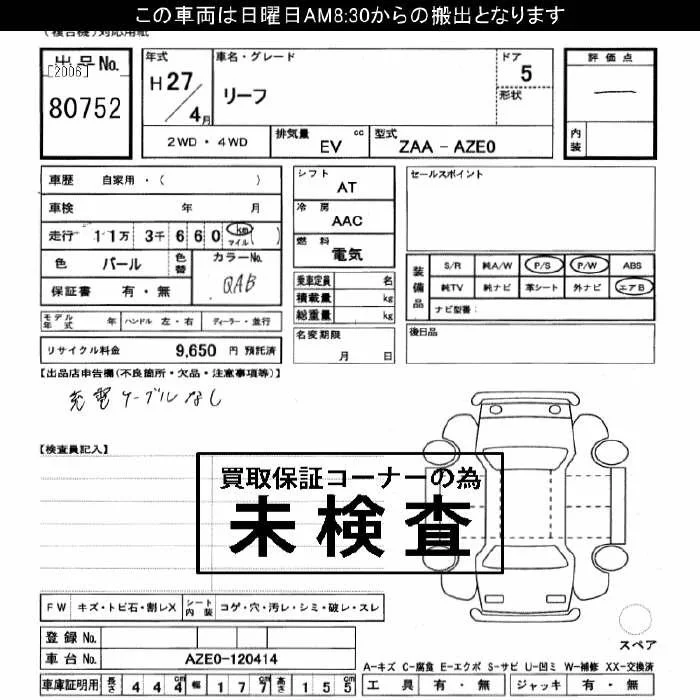 この車両は日曜日AM8:30からの搬出となります
(複合機)対応用紙
出品No.
[2006]
80752
年式
H27/4月
車名・グレード
リーフ
ドア
5
形状
評価点
内装
2WD・4WD
排気量 cc
EV
型式
ZAA - AZE0
車歴 自家用・( )
車検 年 月
走行 11万 3千 660 km マイル ( )
色 パール
色替
カラーNo.
QAB
保証書 有・無
シフト
AT
冷房
AAC
燃料
電気
セールスポイント
装備品
S/R 純A/W P/S P/W ABS
純TV 純ナビ 革シート 外ナビ エアB
ナビ型番:
乗車定員 名
積載量 kg
総重量 kg
モデル年式 年 ハンドル 左・右 ディーラー・並行
名変期限
月 日
後日品
リサイクル料金 9,650 円 預託済
【出品店申告欄(不良箇所・欠品・注意事項等)】
充電ケーブルなし
【検査員記入】
買取保証コーナーの為
未検査
FW キズ・トビ石・割レX シート内装 コゲ・穴・汚レ・シミ・破レ・スレ
登録 No.
車台 No. AZE0-120414
スペア
A-キズ C-腐食 E-エクボ S-サビ U-凹ミ W-補修 XX-交換済
車庫証明用 長さ 444cm 幅 177cm 高さ 155cm
工具 有・無 ジャッキ 有・無